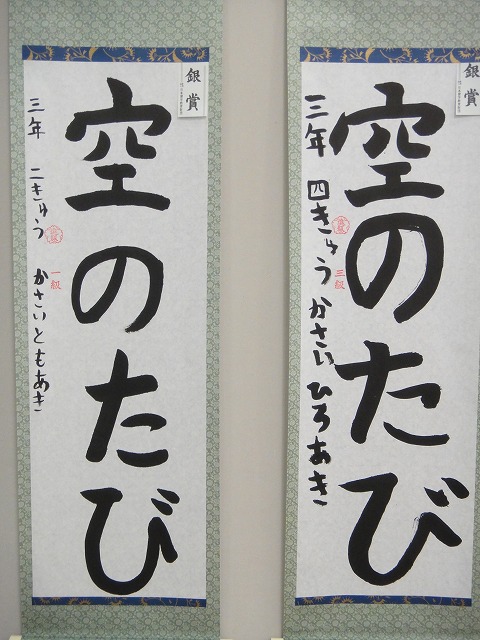 銀賞
空のたび
三年 四きゅう かさい ひろあき
三級
銀賞
空のたび
三年 二きゅう かさいともあき
一級